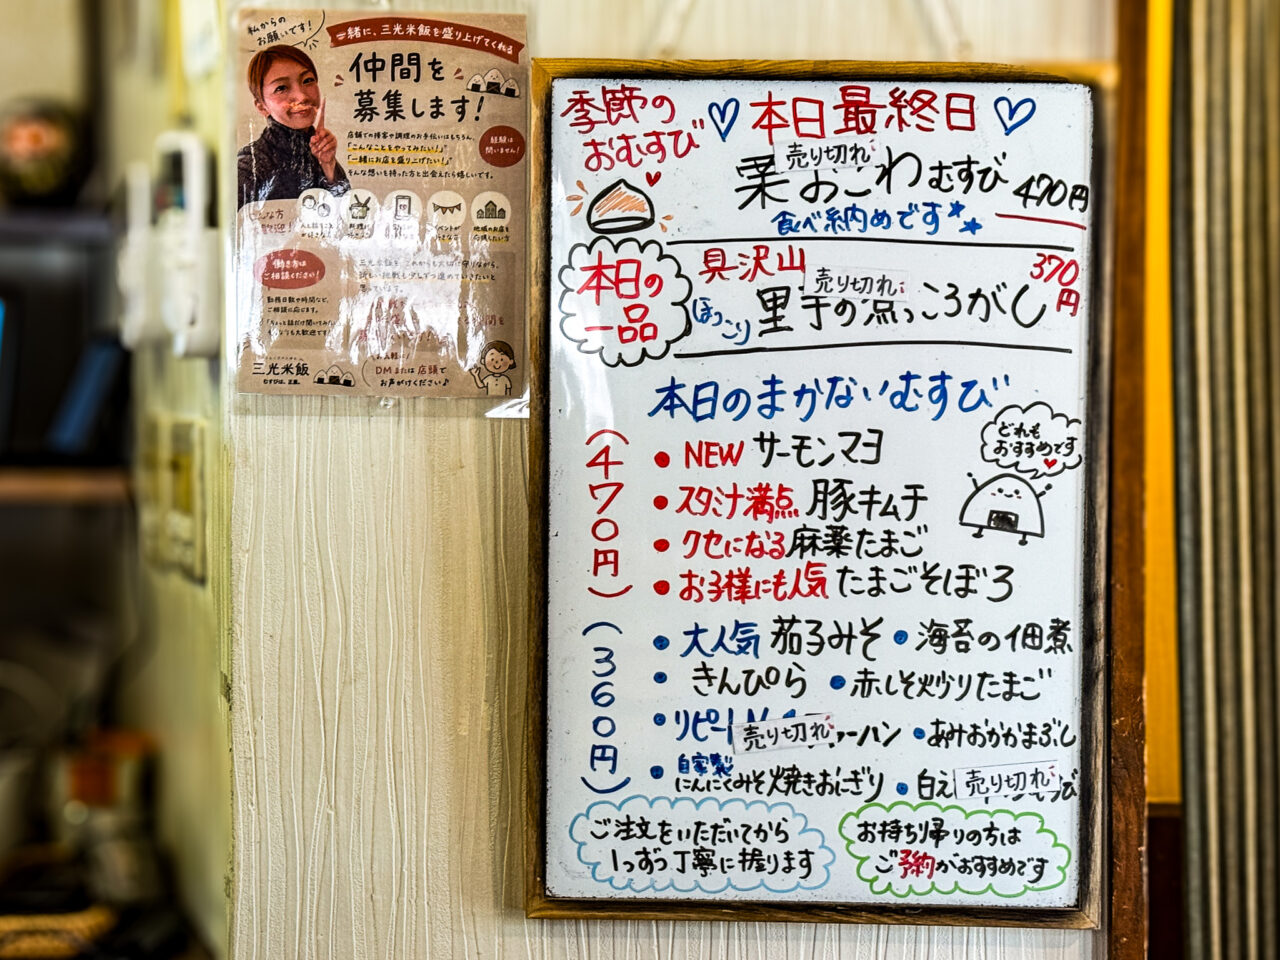 私からの
お願いです！
一緒に、三光米飯を盛り上げてくれる
仲間を
募集します！
店舗での接客や調理のお手伝いはもちろん、
「こんなことをやってみたい！」
「一緒にお店を盛り上げたい！」
そんな想いを持った方と出会えたら嬉しいです。
経験は
問いません！
地域のお店を
応援したい方
働き方は
ご相談ください！
勤務日数や時間など、
ご相談に応じます。
三光米飯
むすびは、正義。
DMまたは店頭で
お声がけください♪
季節の
おむすび
本日最終日
栗おこわむすび 470円
売り切れ
食べ納めです
本日の
一品
具沢山
370円
売り切れ
ほっこり 里芋の煮っころがし
本日のまかないむすび
どれも
おすすめです
(470円)
・NEW サーモンマヨ
・スタミナ満点 豚キムチ
・クセになる麻薬たまご
・お子様にも人気 たまごそぼろ
(360円)
・大人気 茄子みそ ・海苔の佃煮
・きんぴら ・赤しそ炒りたまご
・リピート 売り切れ ャーハン ・あみおかかまぶし
・自家製
にんにくみそ焼きおにぎり ・白え 売り切れ
ご注文をいただいてから
1つずつ丁寧に握ります
お持ち帰りの方は
ご予約がおすすめです